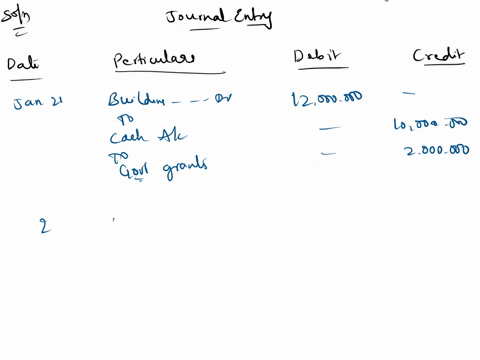 Soln
Journal Entry
Date Perticulars Debit Credit
Jan 21 Building - - - Dr 12,000,000 -
To
Cash A/c - 10,000,000
To
Govt grants - 2,000,000
2